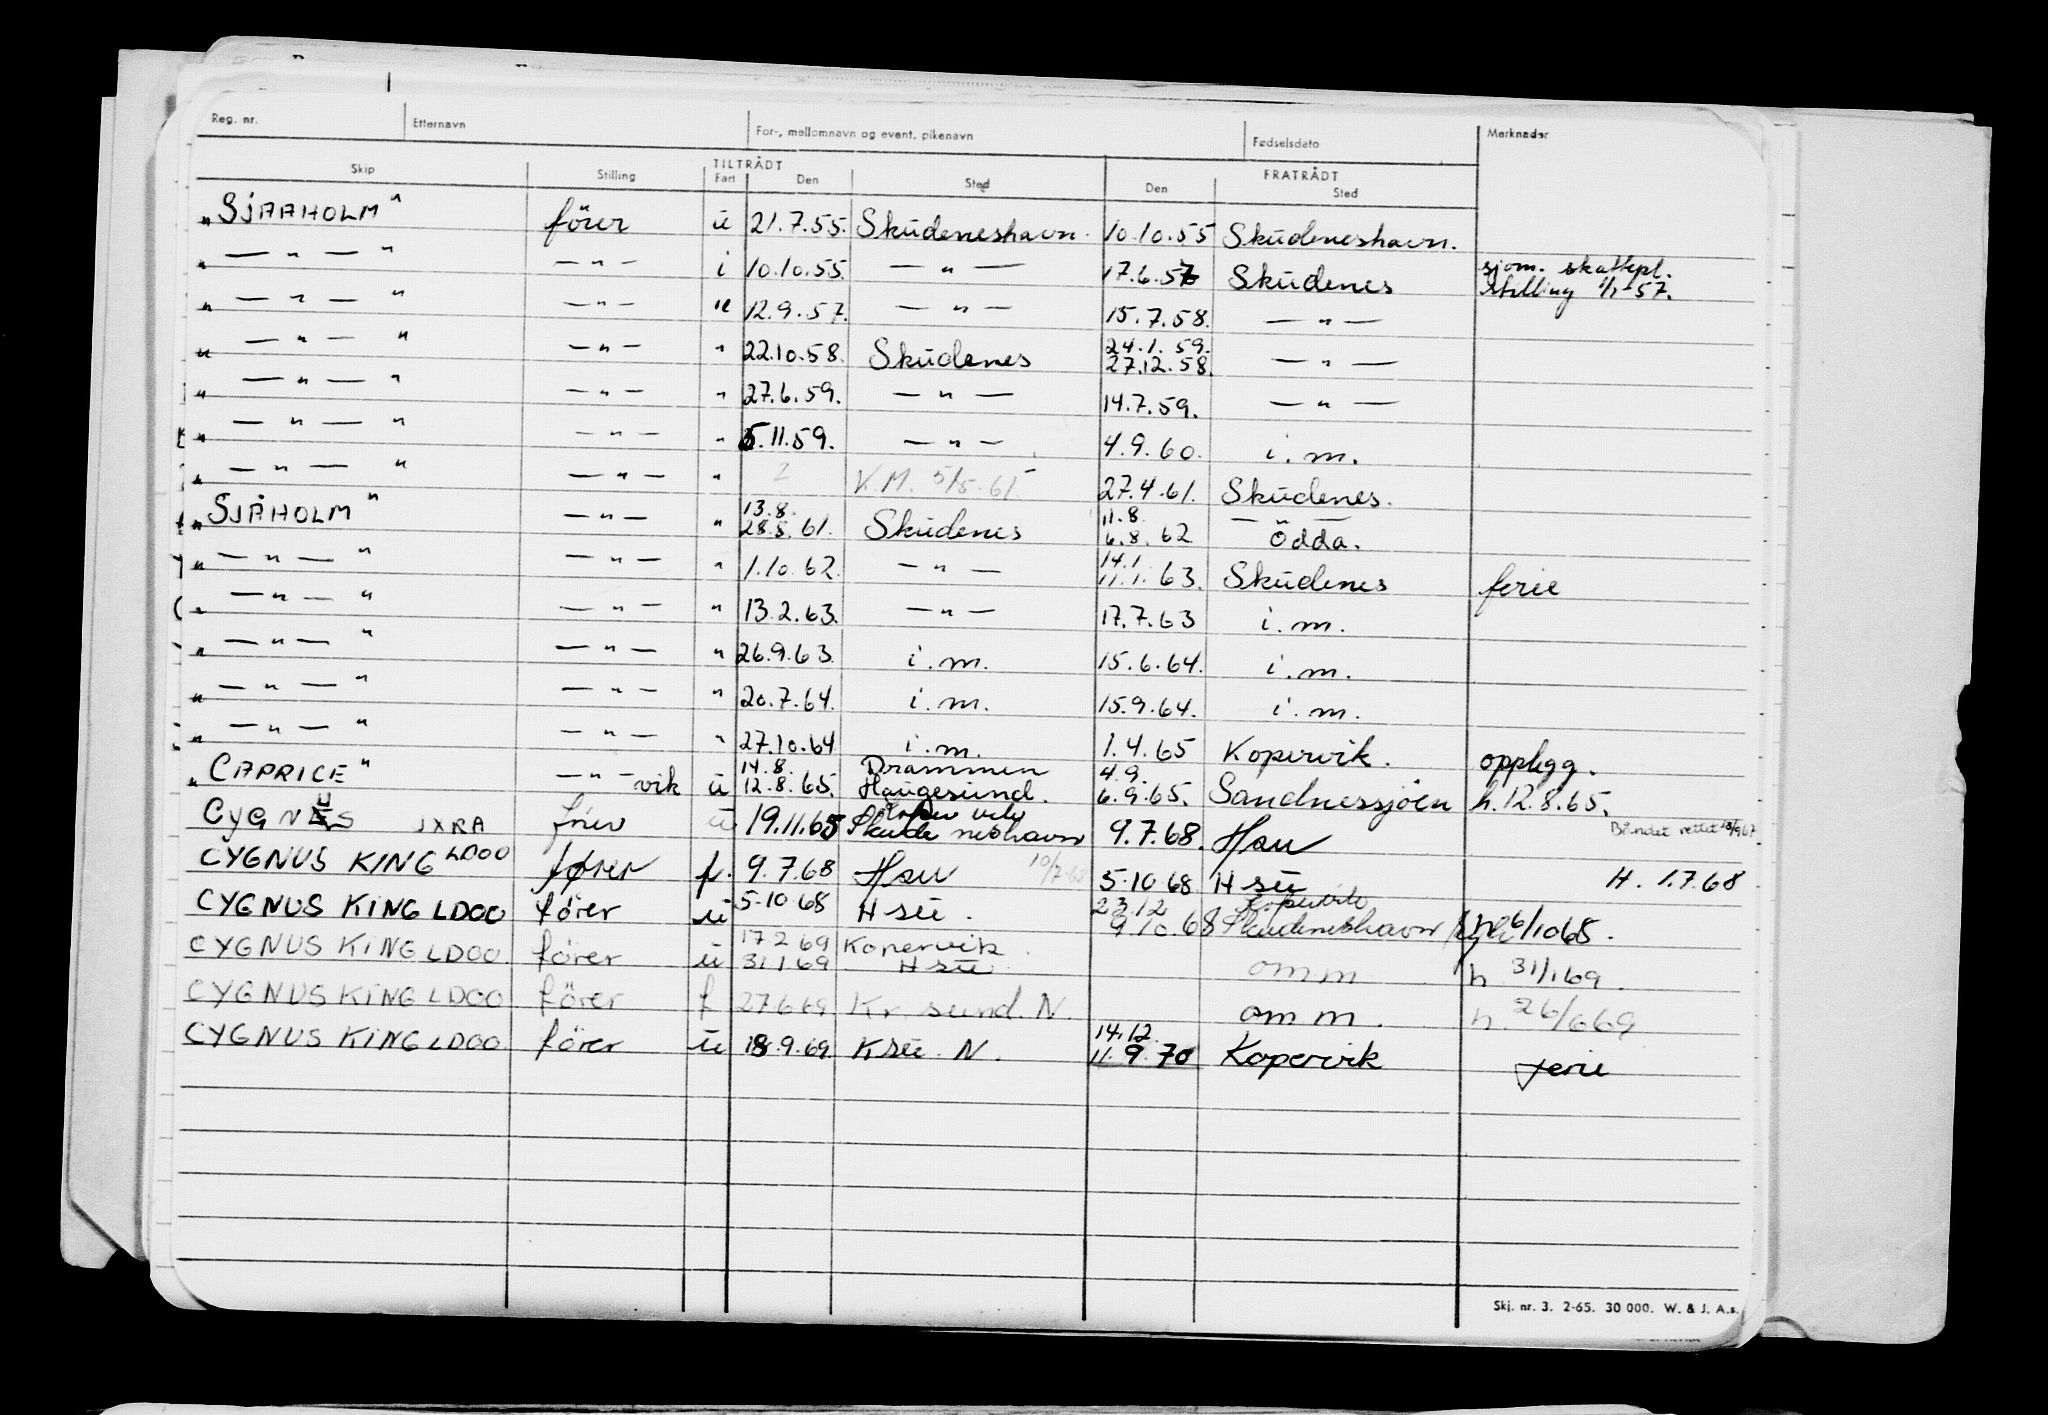 Reg. nr. Etternavn For-, mellomnavn og event. pikenavn Fødselsdato Merknader
TILTRÅDT FRATRÅDT
Skip Stilling Fart Den Sted Den Sted
„SJAAHOLM" förer ü 21.7.55. Skudeneshavn. 10.10.55 Skudeneshavn.
„ — " — " — " — i 10.10.55. — " — 17.6.57 Skudenes sjøm. skattepl. stilling 1/1-57.
„ — " — " — " — " 12.9.57. — " — 15.7.58. — " —
„ — " — " — " — " 22.10.58. Skudenes 24.1.59. 27.12.58. — " —
„ — " — " — " — " 27.6.59. — " — 14.7.59. — " —
„ — " — " — " — " 5.11.59. — " — 4.9.60. i.m.
„ — " — " — " — " 2 V.M. 5/5-61 27.4.61. Skudenes.
„SJÅHOLM" — " — " 13.8. 28.8.61. Skudenes 11.8. 6.8.62 — Odda.
„ — " — " — " — " 1.10.62. — " — 14.1 11.1.63. Skudenes ferie
„ — " — " — " — " 13.2.63. — " — 17.7.63 i.m.
„ — " — " — " — " 26.9.63. i.m. 15.6.64. i.m.
„ — " — " — " — " 20.7.64. i.m. 15.9.64. i.m.
„ — " — " — " — " 27.10.64 i.m. 1.4.65 Kopervik. opplegg.
„CAPRICE" — " — vik ü 14.8. 12.8.65. Drammen Haugesund. 4.9. 6.9.65. Sandnessjöen h.12.8.65.
CYGNUS JXRA förer ü 19.11.65 Koper vik Skudeneshavn 9.7.68. Hau Båndet rettet 18/9 67.
CYGNUS KING LDOO fører f. 9.7.68 Hau 10/7-68 5-10 68 H sü H. 1.7.68
CYGNUS KING LDOO förer ü 5-10 68 H sü. 23.12 9.10.68 Kopervik Skudeneshavn 26/10 68.
CYGNUS KING LDOO förer ü 17 2 69 31.1 69 Kopervik H sü omm h 31/1 69.
CYGNUS KING LDOO förer f 27 6 69 Kr. sund. N. omm. h. 26/6 69
CYGNUS KING LDOO förer ü 18.9.69 K sü. N. 14.12 11.9.70 Kopervik ferie
Skj. nr. 3. 2-65. 30 000. W. & J. A.s.